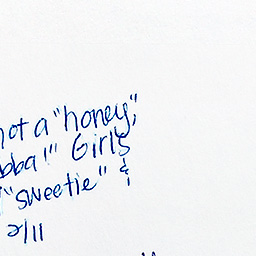 not a "honey,"
bba!" Girls
"sweetie" &
2/11